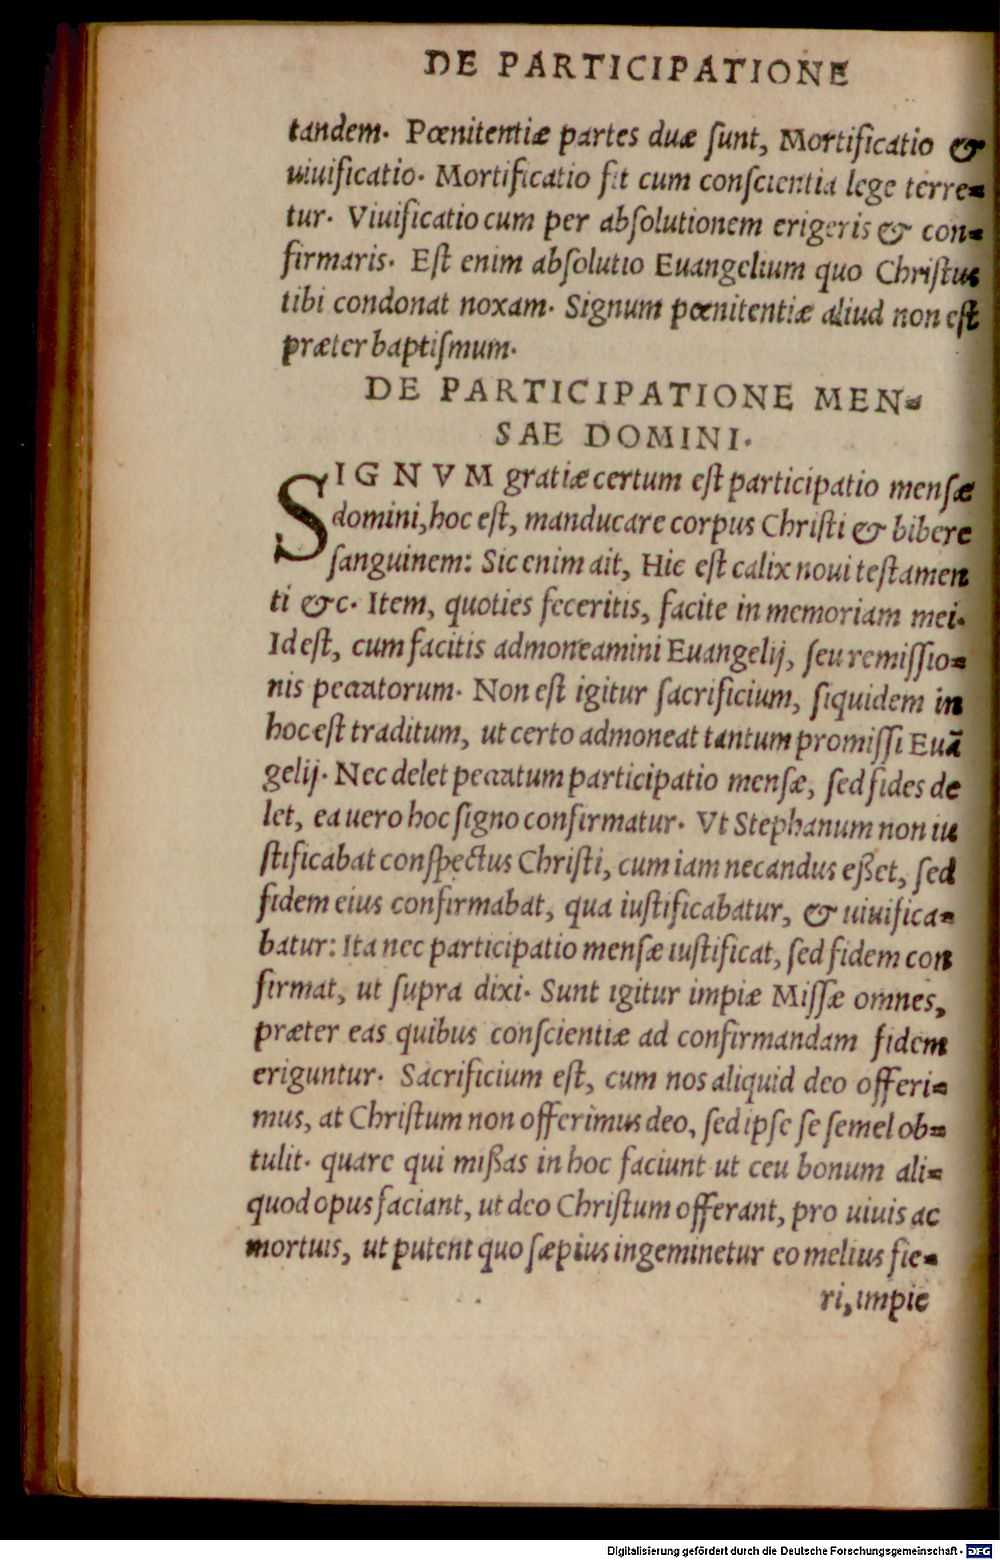 DE PARTICIPATIONE
tandem. Pœnitentiæ partes duæ ſunt, Mortificatio &
uiuificatio. Mortificatio fit cum conſcientia lege terre-
tur. Viuificatio cum per abſolutionem erigeris & con-
firmaris. Eſt enim abſolutio Euangelium quo Chriſtus
tibi condonat noxam. Signum pœnitentiæ aliud non eſt
præter baptiſmum.
DE PARTICIPATIONE MEN-
SAE DOMINI.
SIGNVM gratiæ certum eſt participatio menſæ
domini, hoc eſt, manducare corpus Chriſti & bibere
ſanguinem: Sic enim ait, Hic eſt calix noui teſtamen
ti &c. Item, quoties feceritis, facite in memoriam mei.
Id eſt, cum facitis admoneamini Euangelij, ſeu remiſſio-
nis peccatorum. Non eſt igitur ſacrificium, ſiquidem in
hoc eſt traditum, ut certo admoneat tantum promiſſi Euã
gelij. Nec delet peccatum participatio menſæ, ſed fides de
let, ea uero hoc ſigno confirmatur. Vt Stephanum non iu
ſtificabat conſpectus Chriſti, cum iam necandus eßet, ſed
fidem eius confirmabat, qua iuſtificabatur, & uiuifica-
batur: Ita nec participatio menſæ iuſtificat, ſed fidem con
firmat, ut ſupra dixi. Sunt igitur impiæ Miſſæ omnes,
præter eas quibus conſcientiæ ad confirmandam fidem
eriguntur. Sacrificium eſt, cum nos aliquid deo offeri-
mus, at Chriſtum non offerimus deo, ſed ipſe ſe ſemel ob-
tulit. quare qui mißas in hoc faciunt ut ceu bonum ali-
quod opus faciant, ut deo Chriſtum offerant, pro uiuis ac
mortuis, ut putent quo ſæpius ingeminetur eo melius fie-
ri, impie
Digitalisierung gefördert durch die Deutsche Forschungsgemeinschaft - DFG